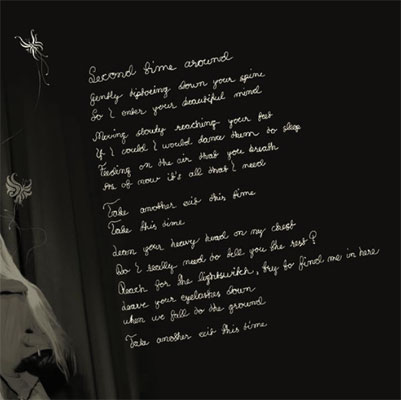 Second time around
Gently tiptoeing down your spine
So I enter your beautiful mind
Moving slowly reaching your feet
If I could I would dance them to sleep
Feeding on the air that you breath
As of now it's all that I need
Take another exit this time
Take this time
Lean your heavy head on my chest
Do I really need to tell you the rest?
Reach for the lightswitch, try to find me in here
Leave your eyelashes down
when we fall to the ground
Take another exit this time